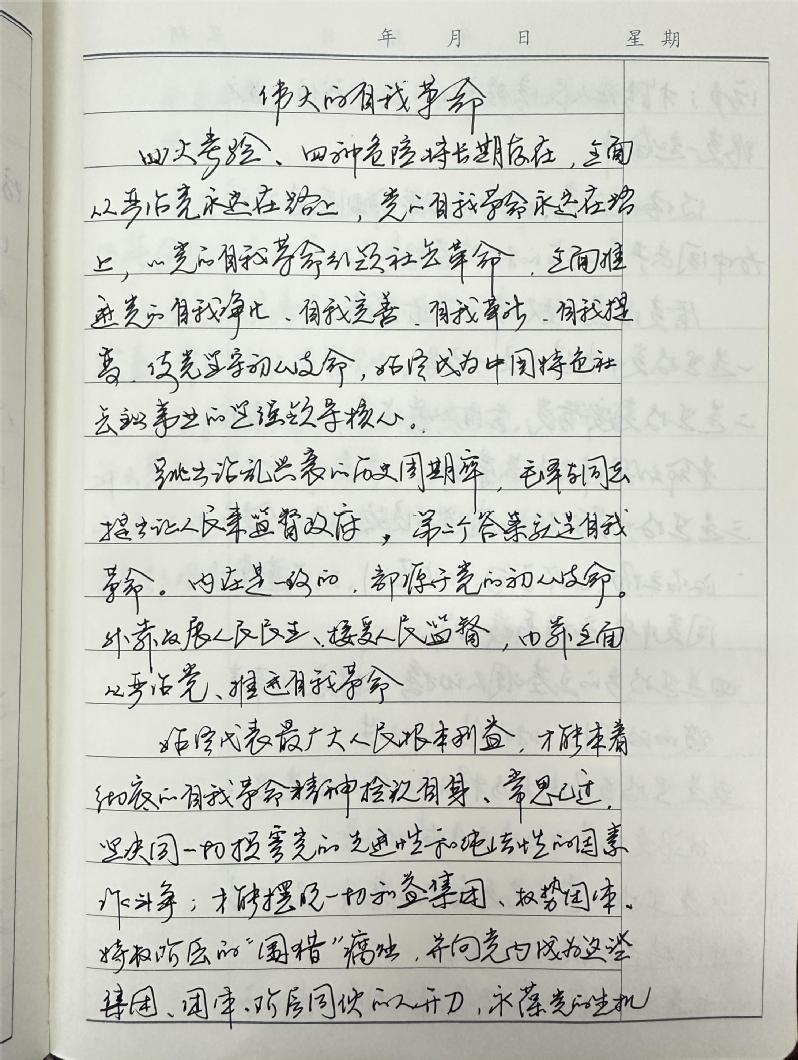 年 月 日 星期
伟大的自我革命
四大考验、四种危险将长期存在，全面
从严治党永远在路上，党的自我革命永远在路
上，以党的自我革命引领社会革命，全面推
进党的自我净化、自我完善、自我革新、自我提
高，使党坚守初心使命，始终成为中国特色社
会主义事业的坚强领导核心。
跳出治乱兴衰的历史周期率，毛泽东同志
提出让人民来监督政府，第二个答案就是自我
革命。内在是一致的，都源于党的初心使命。
外靠发展人民民主、接受人民监督，内靠全面
从严治党、推进自我革命
始终代表最广大人民根本利益，才能本着
彻底的自我革命精神检视自身、常思己过，
坚决同一切损害党的先进性和纯洁性的因素
作斗争；才能摆脱一切利益集团、权势团体、
特权阶层的“围猎”腐蚀，并向党内成为这些
集团、团体、阶层同伙的人开刀，永葆党的生机